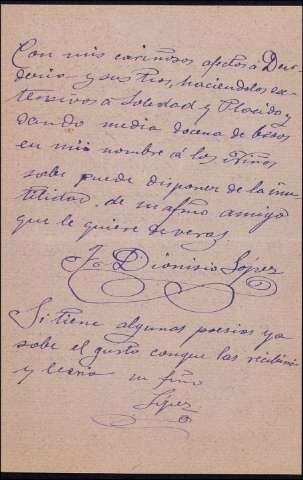 Con mis cariñosos afectos a Deu-
doria y sus tios, haciendolos ex-
tensivos á Soledad y Placido, y
dando media docena de besos
en mi nombre á los Niños
sabe puede disponer de la inu-
tilidad de su afmo amigo
que le quiere de veras
Dionisio López
Si tiene algunas poesias ya
sabe el gusto conque las recibiria
y leeria su afmo
López